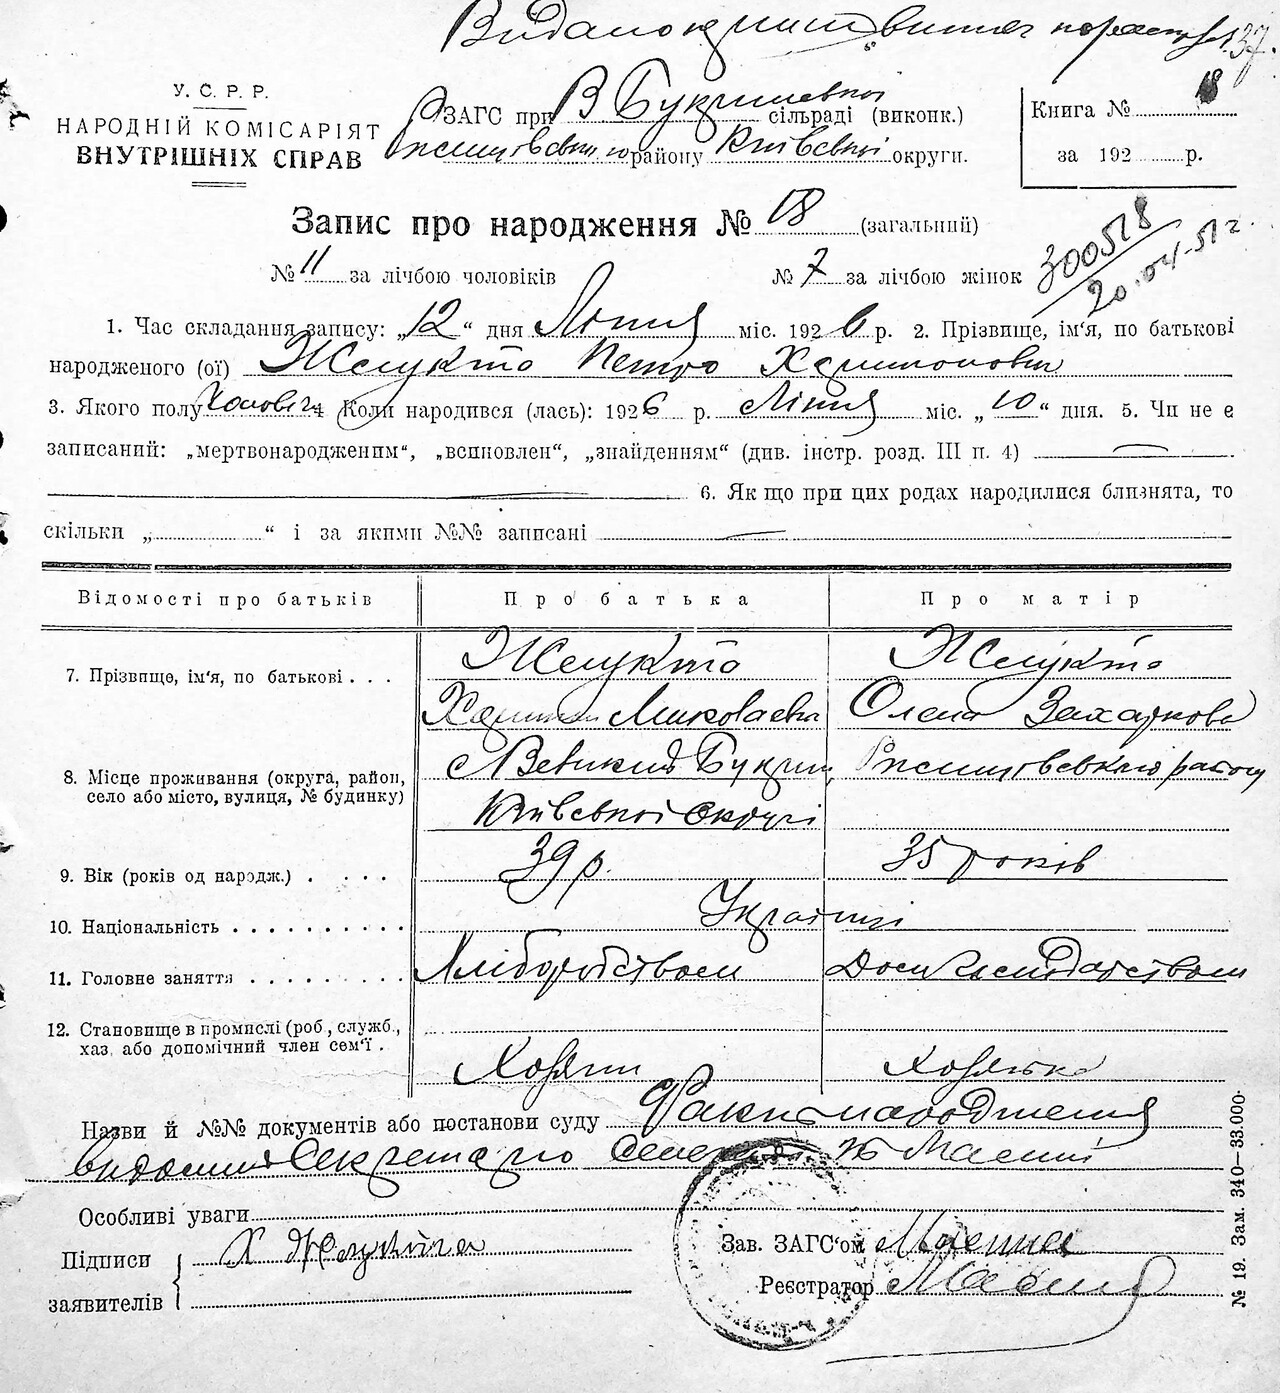 У. С. Р. Р.
НАРОДНІЙ КОМІСАРІЯТ
ВНУТРІШНІХ СПРАВ
ЗАГС при В Букриневкої сільраді (виконк.)
району Київської округи.
Книга № 18
за 192 р.
Запис про народження № 18 (загальний)
№ 11 за лічбою чоловіків № 7 за лічбою жінок
300518
20.04.51г.
1. Час складання запису: „12“ дня Липня міс. 1926 р. 2. Прізвище, ім'я, по батькові
народженого (ої) Желукто Петро Харитонович
3. Якого полу Чоловіч 4 Коли народився (лась): 1926 р. Липня міс. „10“ дня. 5. Чи не є
записаний: „мертвонародженим“, „всиновлен“, „знайденням“ (див. інстр. розд. III п. 4)
6. Як що при цих родах народилися близнята, то
скільки „ “ і за якими №№ записані
Відомості про батьків Про батька Про матір
7. Прізвище, ім'я, по батькові . . . Желукто Желукто
Харитон Миколаєв Олена Захаркова
8. Місце проживання (округа, район, село або місто, вулиця, № будинку) с Великий Букрин Ржищівського району
Київської Округи
9. Вік (років од народж.) . . . . 39 р. 35 років
10. Національність . . . . . . . . . . Українці
11. Головне заняття . . . . . . . . . Хліборобством Дом Господарством
12. Становище в промислі (роб, служб., хаз. або допомічний член сем'ї . Хазяїн Хазяйка
Назви й №№ документів або постанови суду народження
Секретарю
Особливі уваги
Підписи заявителів Х Желукто
Зав. ЗАГС'ом
Реєстратор
№ 19. Зам. 340—33.000·